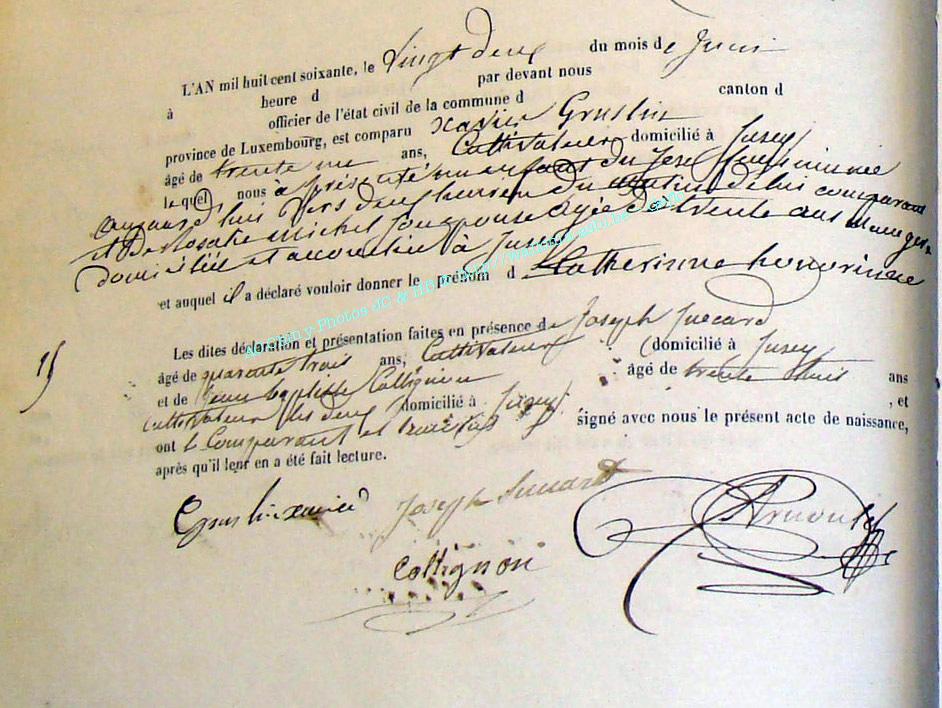 L'AN mil huit cent soixante, le vingt deux du mois de juin
à heure d par devant nous
officier de l'état civil de la commune d canton d
province de Luxembourg, est comparu Xavier Gruslin
âgé de trente un ans, Cultivateur domicilié à Jusey
lequel, nous à présenté un enfant du sexe féminin née
aujourd'hui vers deux heures du matin de lui comparant
et de Rosalie Michel son épouse agée de trente ans
domiciliée et à Jusey
et auquel il a déclaré vouloir donner le prénom d Catherinne honorinne
Les dites déclaration et présentation faites en présence de Joseph
âgé de quarante trois ans, Cultivateur domicilié à Jusey
et de Jean baptiste Collignon âgé de trente huit ans
cultivateur les deux domicilié à Jusey , et
ont le Comparant et signé avec nous le présent acte de naissance,
après qu'il leur en a été fait lecture.
15
Gruslin xavier Joseph
Collignon